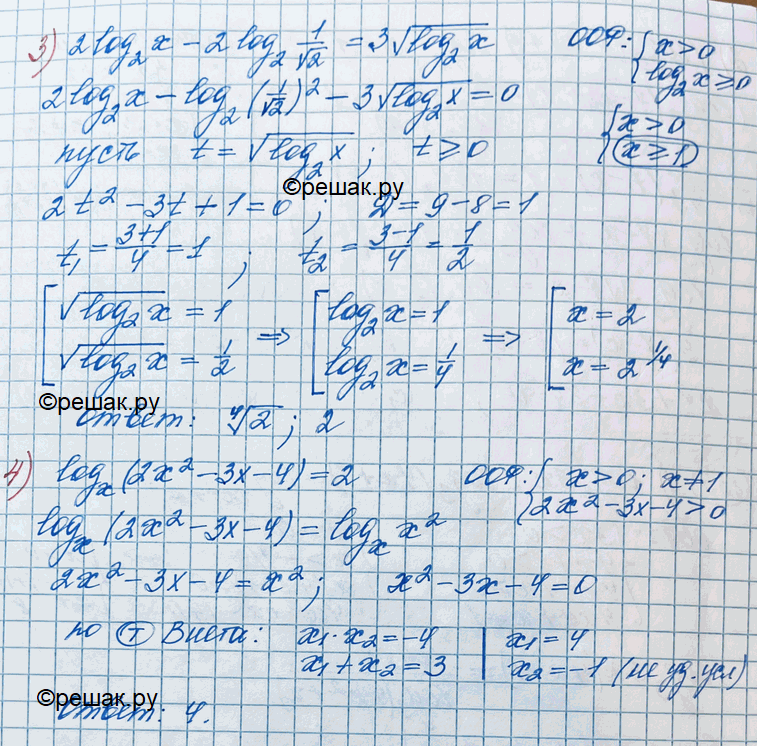 3) 2log₂x − 2log₂ 1/√2 = 3√(log₂x) ООФ: { x>0
log₂x ≥ 0
2log₂x − log₂(1/√2)² − 3√(log₂x) = 0 { x>0
x≥1
пусть t = √(log₂x); t ≥ 0
©решак.ру
2t² − 3t + 1 = 0; D = 9 − 8 = 1
t₁ = (3+1)/4 = 1; t₂ = (3−1)/4 = 1/2
[ √(log₂x) = 1 ⇒ [ log₂x = 1 ⇒ [ x = 2
√(log₂x) = 1/2 log₂x = 1/4 x = 2^(1/4)
©решак.ру
ответ: ⁴√2; 2
4) logₓ(2x² − 3x − 4) = 2 ООФ: { x>0; x≠1
2x² − 3x − 4 > 0
logₓ(2x² − 3x − 4) = logₓx²
2x² − 3x − 4 = x²; x² − 3x − 4 = 0
по Т Виета: x₁·x₂ = −4 | x₁ = 4
x₁ + x₂ = 3 | x₂ = −1 (не уд. усл)
©решак.ру
ответ: 4.